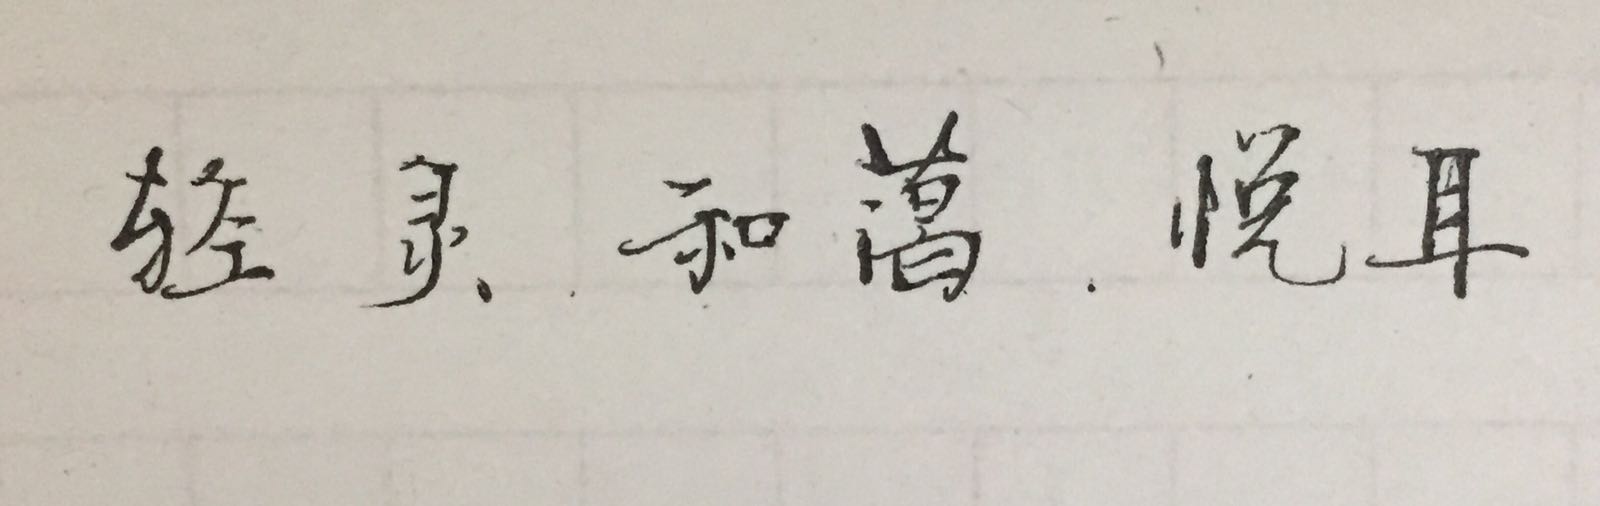 轻灵.和蔼.悦耳